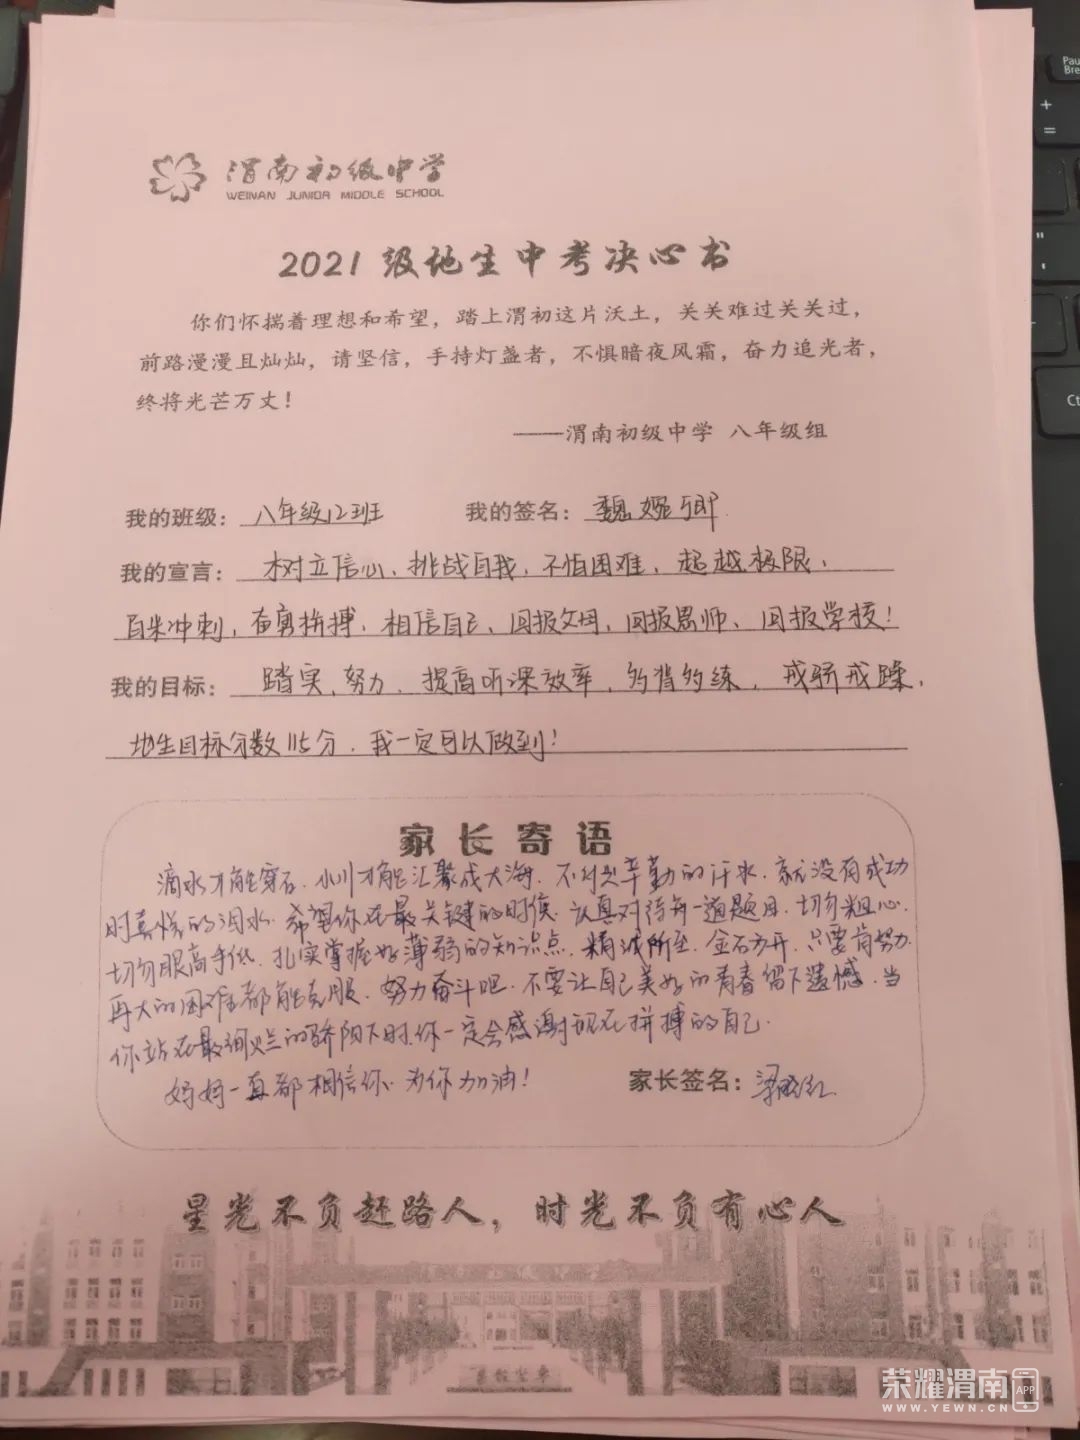 渭南初级中学
WEINAN JUNIOR MIDDLE SCHOOL
2021级地生中考决心书
你们怀揣着理想和希望，踏上渭初这片沃土，关关难过关关过，
前路漫漫且灿灿，请坚信，手持灯盏者，不惧暗夜风霜，奋力追光者，
终将光芒万丈！
——渭南初级中学 八年级组
我的班级：八年级12班 我的签名：魏婉卿
我的宣言：树立信心、挑战自我，不怕困难、超越极限，
百米冲刺，奋勇拼搏，相信自己、回报父母，回报恩师、回报学校！
我的目标：踏实、努力、提高听课效率，多背多练，戒骄戒躁，
地生目标分数115分，我一定可以做到！
家长寄语
滴水才能穿石，小川才能汇聚成大海，不付出辛勤的汗水，就没有成功
时喜悦的泪水，希望你在最关键的时候，认真对待每一道题目，切勿粗心，
切勿眼高手低，扎实掌握好薄弱的知识点，精诚所至，金石为开，只要肯努力
再大的困难都能克服，努力奋斗吧，不要让自己美好的青春留下遗憾，当
你站在最绚烂的骄阳下时，你一定会感谢现在拼搏的自己.
妈妈一直都相信你，为你加油！ 家长签名：梁
星光不负赶路人，时光不负有心人
渭南初级中学
荣耀渭南 APP
WWW.YEWN.CN
Pau
Bre
+
=
"
'
Ct